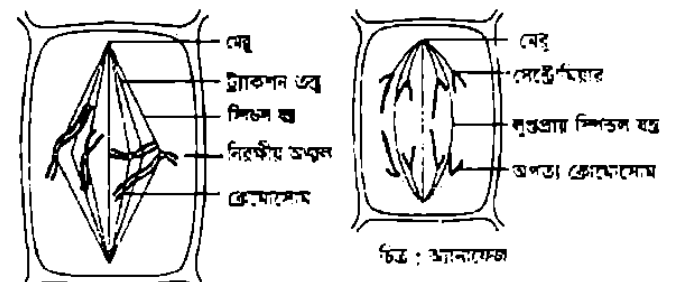 মেরু
ট্র্যাকশন তন্তু
স্পিন্ডল যন্ত্র
নিরক্ষীয় অঞ্চল
ক্রোমোসোম
মেরু
সেন্ট্রোমিয়ার
লুপ্তপ্রায় স্পিন্ডল যন্ত্র
অপত্য ক্রোমোসোম
চিত্র : অ্যানাফেজ